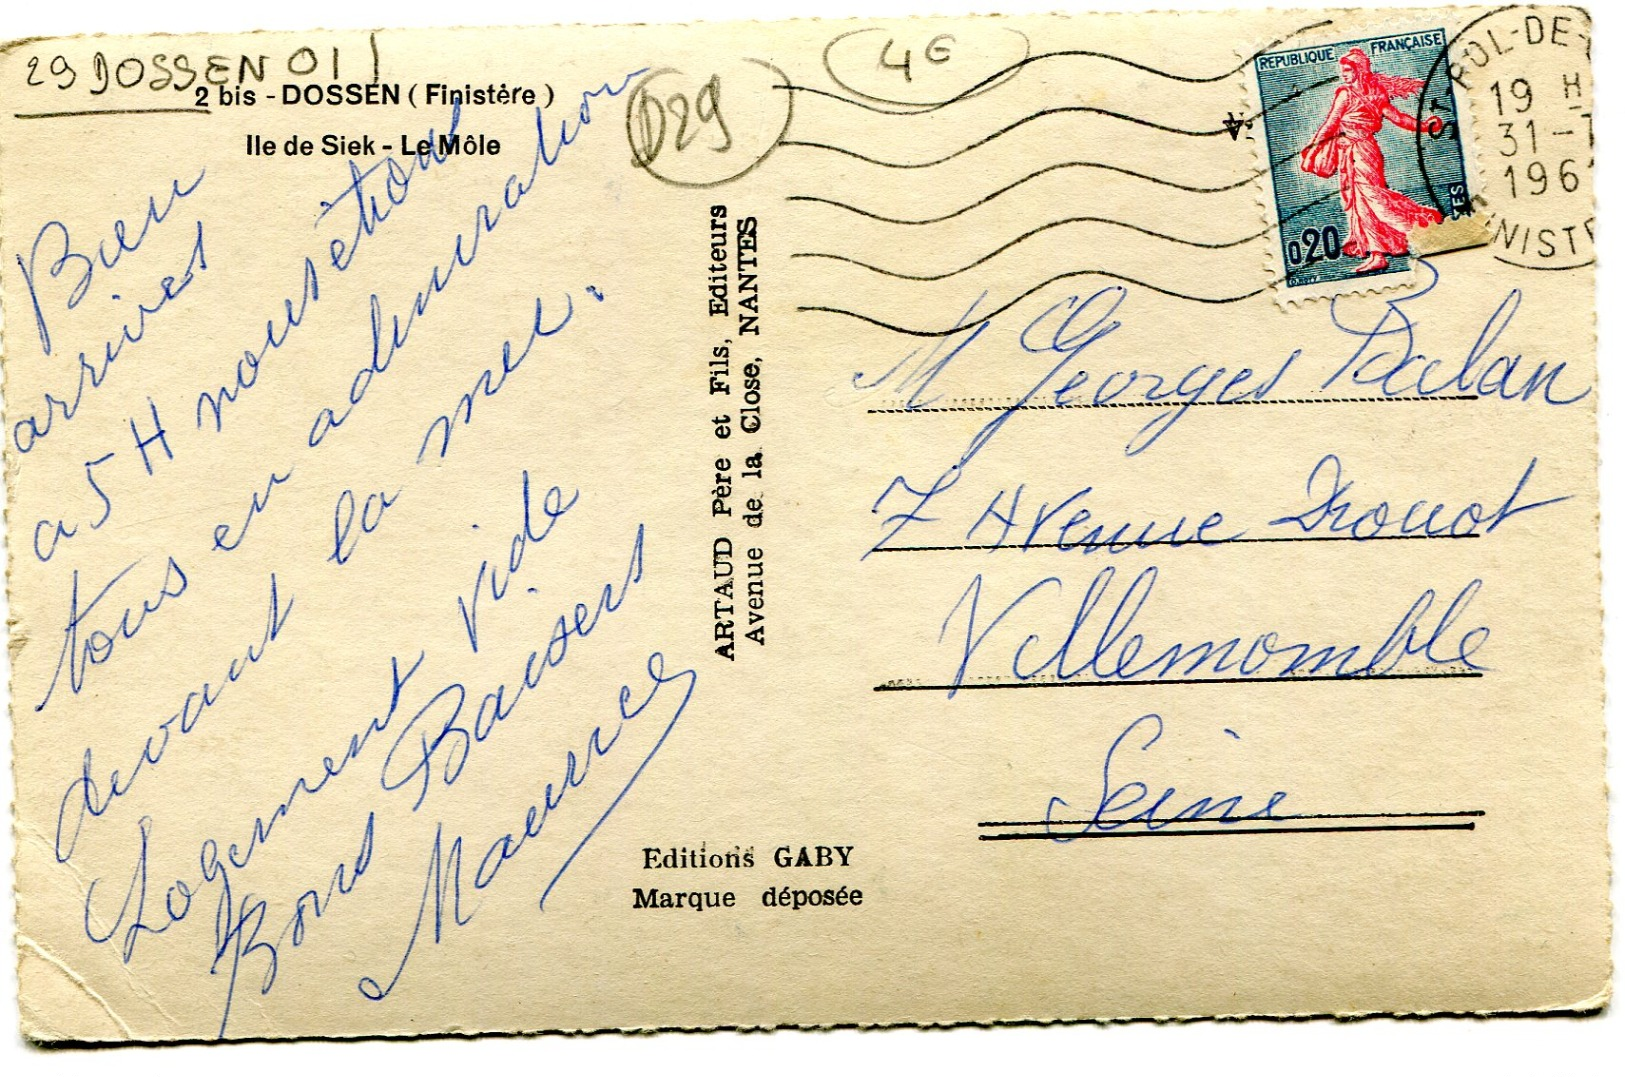 29 DOSSEN 01
2 bis - DOSSEN ( Finistère )
Ile de Siek - Le Môle
D29
4€
Bien
arrivés
a 5 H nous étions
tous en admiration
devant la mer.
Logement vide
Bons Baisers
Maurice
ARTAUD Père et Fils, Editeurs
Avenue de la Close, NANTES
Editions GABY
Marque déposée
REPUBLIQUE FRANÇAISE
0,20
ST POL-DE-
19 H
31-7
196
NISTE
M Georges Balan
7 Avenue Drouot
Villemomble
Seine